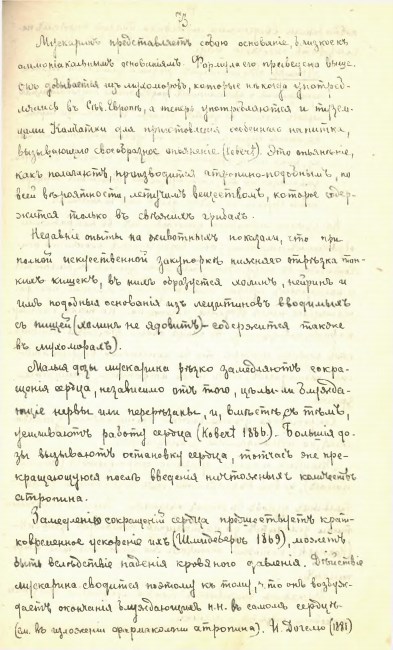 73.
Мускаринъ представляетъ собою основаніе, близкое къ
аммоніакальнымъ основаніямъ. Формула его приведена выше.
Онъ добывается изъ мухоморовъ, которые нѣкогда употреб-
лялись въ Сѣв. Европѣ, а теперь употребляются и тузем-
цами Камчатки для приготовленія особеннаго напитка,
вызывающаго своеобразное опьяненіе (Kobert). Это опьянѣніе,
какъ полагаютъ, производится атропино-подобнымъ, по
всей вѣроятности, летучимъ веществомъ, которое содер-
жится только въ свѣжихъ грибахъ.
Недавніе опыты на животныхъ показали, что при
полной искуственной закупоркѣ нижняго отрѣзка тон-
кихъ кишекъ, въ нихъ образуется холинъ, нейринъ и
имъ подобныя основанія изъ лецитиновъ вводимыхъ
съ пищей (холинъ не ядовитъ) - содержится также
въ мухоморахъ).
Малыя дозы мускарина рѣзко замедляютъ сокра-
щенія сердца, независимо отъ того, цѣлы-ли блужда-
ющіе нервы или перерѣзаны, и, вмѣстѣ съ тѣмъ,
уменьшаютъ работу сердца (Kobert 1886). Большія до-
зы вызываютъ остановку сердца, тотчасъ же пре-
кращающуюся послѣ введенія ничтожныхъ количествъ
атропина.
Замедленію сокращеній сердца предшествуетъ крат-
ковременное ускореніе ихъ (Шмидебергъ 1869), можетъ
быть вслѣдствіе паденія кровяного давленія. Дѣйствіе
мускарина сводится поэтому къ тому, что онъ возбуж-
даетъ окончанія блуждающихъ н.н. въ самомъ сердцѣ
(см. въ изложеніи фармакологіи атропина). И. Догель (1881)